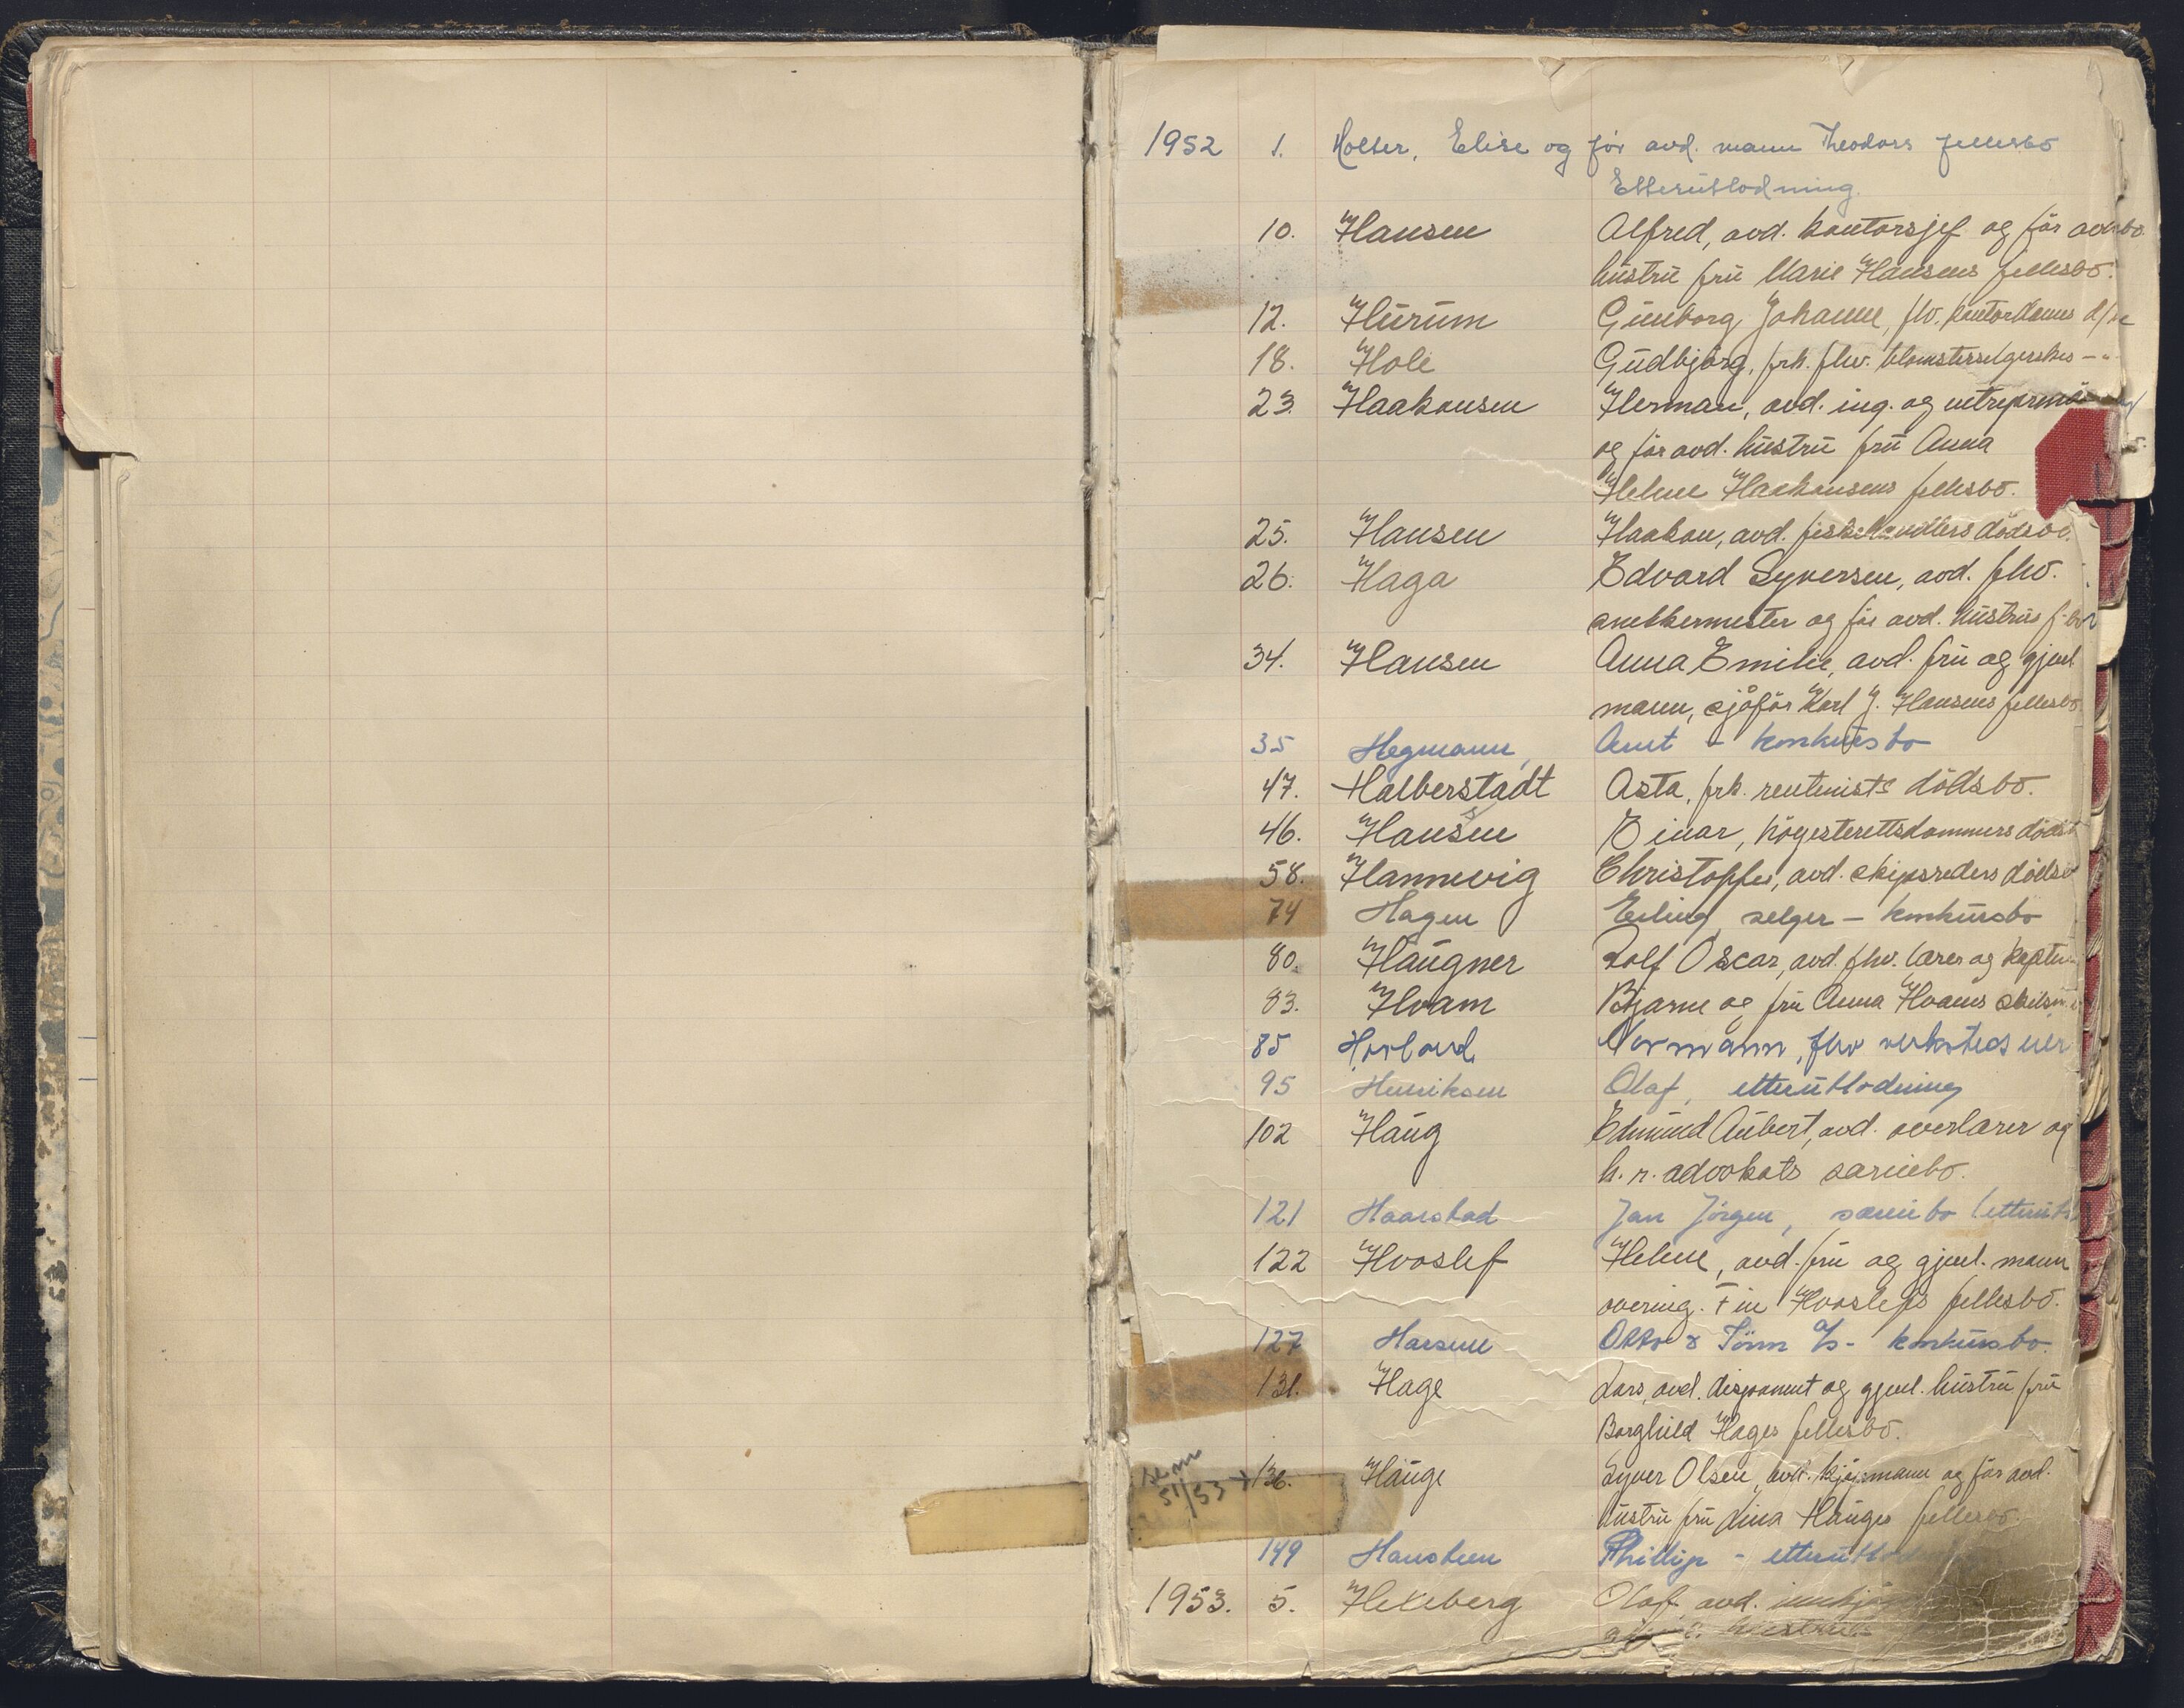 1952 1. Holter, Elise og för avd. mann Theodors fellesbo
Etterutlodning.
10. Hansen Alfred, avd. kontorsjef og för avd.
hustru fru Marie Hansens fellesbo.
12. Hurum Gunborg Johanne, fhv. kontordames
18. Hole Gudbjörg, frk. fhv. blomsterselgerskes - " -
23. Haakonsen Herman, avd. ing. og entreprenör
og för avd. hustru fru Anna
Helene Haakonsens fellesbo.
25. Hansen Haakon, avd. fiskehandlers dödsbo.
26. Haga Edvard Syversen, avd. fhv.
snekkermester og för avd. hustrus
34. Hansen Anna Emilie, avd. fru og gjenl.
mann, sjåför Karl J. Hansens fellesbo
35 Hegmann, Arnt - konkursbo
47. Halberstadt Asta, frk. rentenists dödsbo.
46. Hanssen Einar, högesterettsdommers dödsb
58. Hannevig Christoffer, avd. skipsreders dödsb
74 Hagen Erling, selger - konkursbo
80. Haugner Rolf Oscar, avd. fhv. lærer og kaptein
83. Hvam Bjarne og fru Anna Hvams skilsm.
85 Hovland Normann, fhv verksteds eier
95 Henriksen Olaf, etterutlodning
102 Haug Edmund Aubert, avd. overlærer og
h. r. advokats særiebo.
121 Haarstad Jan Jörgen, særiebo (etterutl
122 Hvoslef Helene, avd. fru og gjenl. mann
overing. Fin Hvoslefs fellesbo.
127 Hansen Otto & Sönn A/S - konkursbo.
131. Hage Lars, avd. disponent og gjenl. hustru fru
Borghild Hages fellesbo.
se nr
51/53 → 136. Hauge Syver Olsen, avd. kjöpmann og för avd.
hustru fru Dina Hauges fellesbo.
149 Hansteen Phillip - etterutlodning
1953. 5. Hekeberg Olaf, avd.
hustrus